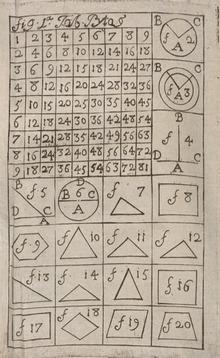 1 2 3 4 5 6 7 8 9
2 4 6 8 10 12 14 16 18
3 6 9 12 15 18 21 24 27
4 8 12 16 20 24 28 32 36
5 10 15 20 25 30 35 40 45
6 12 18 24 30 36 42 48 54
7 14 21 28 35 42 49 56 63
8 16 24 32 40 48 56 64 72
9 18 27 36 45 54 63 72 81
B C
f 2
A
B C
f 3
A
B
f 4
D A C
f 5
B
D C
A
B 6 C
D
A
f 7
f 8
f 9
f 10
f 11
f 12
f 13
f 14
f 15
f 16
f 17
f 18
f 19
f 20